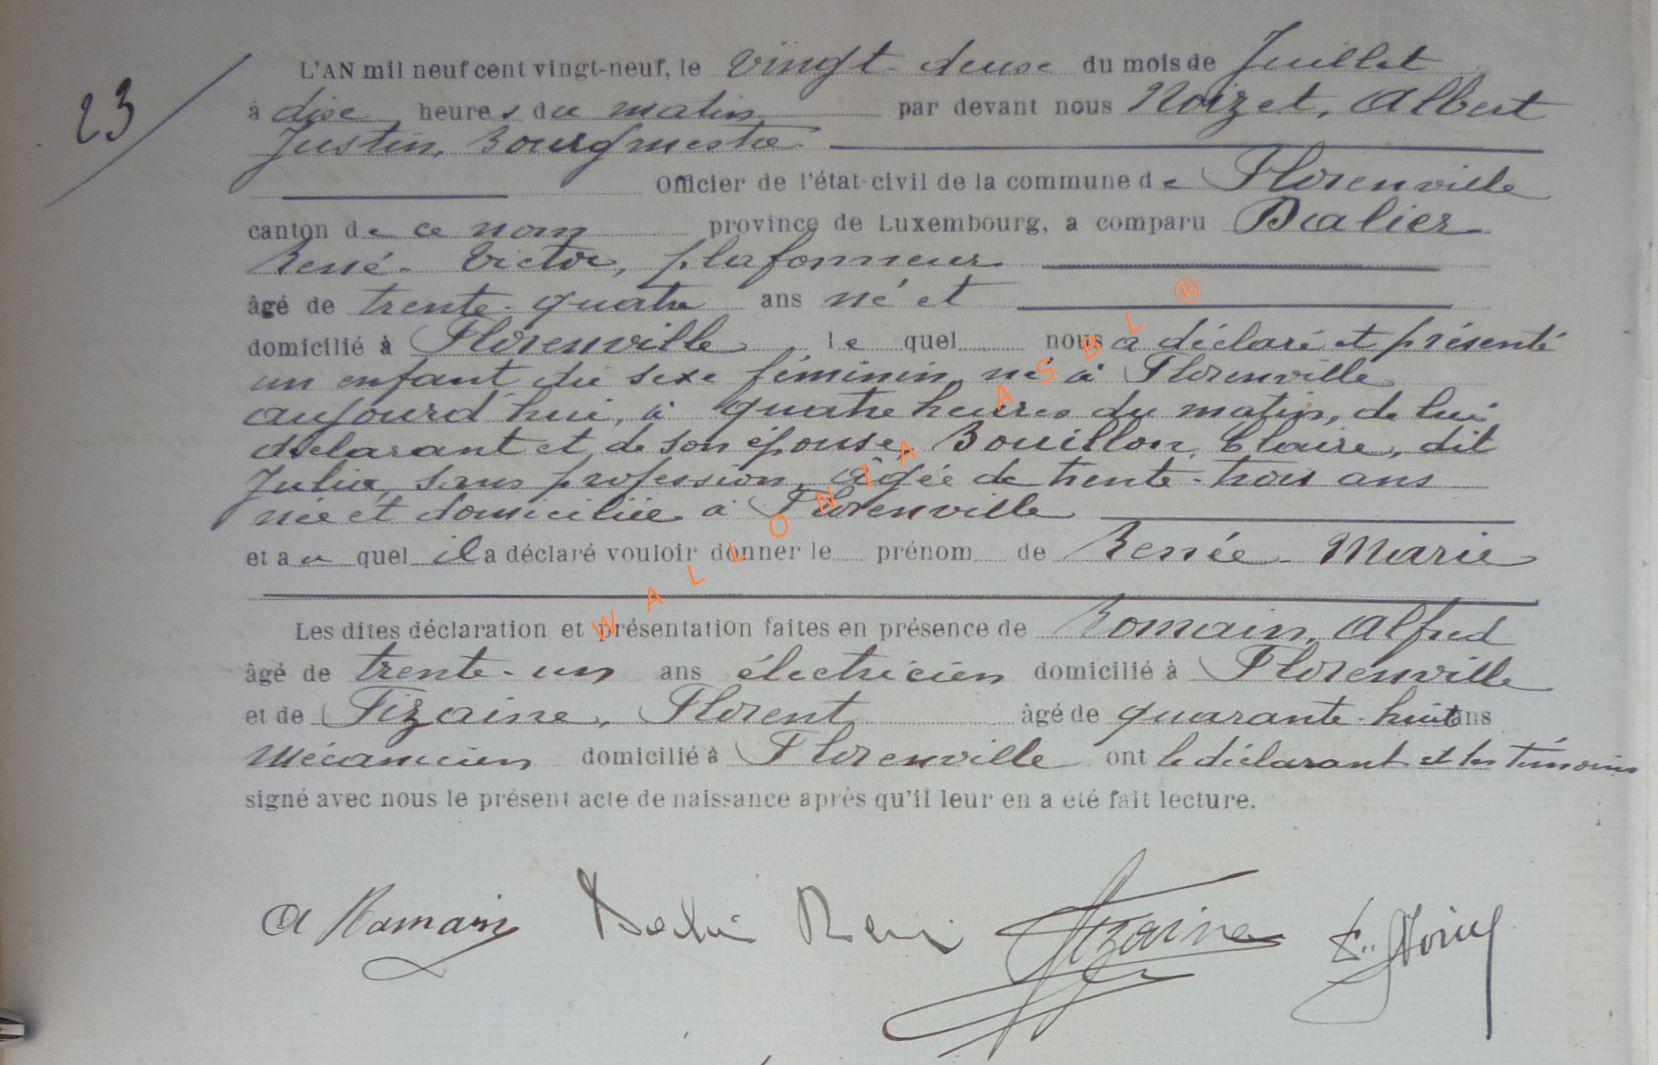 23
L'AN mil neuf cent vingt-neuf, le vingt-deuse du mois de Juillet
à dise heures du matin par devant nous Noizet, Albert
Justin, Bourgmestre
Officier de l'état-civil de la commune de Florenville
canton de ce nom province de Luxembourg, a comparu Dealier
René-Victor, plafonneur
âgé de trente-quatre ans né et
domicilié à Florenville le quel nous a déclaré et présenté
un enfant du sexe féminin, né à Florenville
aujourd'hui, à quatre heures du matin, de lui
déclarant et de son épouse, Bouillon, Claire, dit
Julia, sans profession, âgée de trente-trois ans
née et domiciliée à Florenville
et au quel il a déclaré vouloir donner le prénom de Renée-Marie
Les dites déclaration et présentation faites en présence de Romain, Alfred
âgé de trente-un ans électricien domicilié à Florenville
et de Tizaine, Florent âgé de quarante-huit ans
mécanicien domicilié à Florenville ont le déclarant et les témoins
signé avec nous le présent acte de naissance après qu'il leur en a été fait lecture.
A Romain René Tizaine
WALLONIA ASBL ®